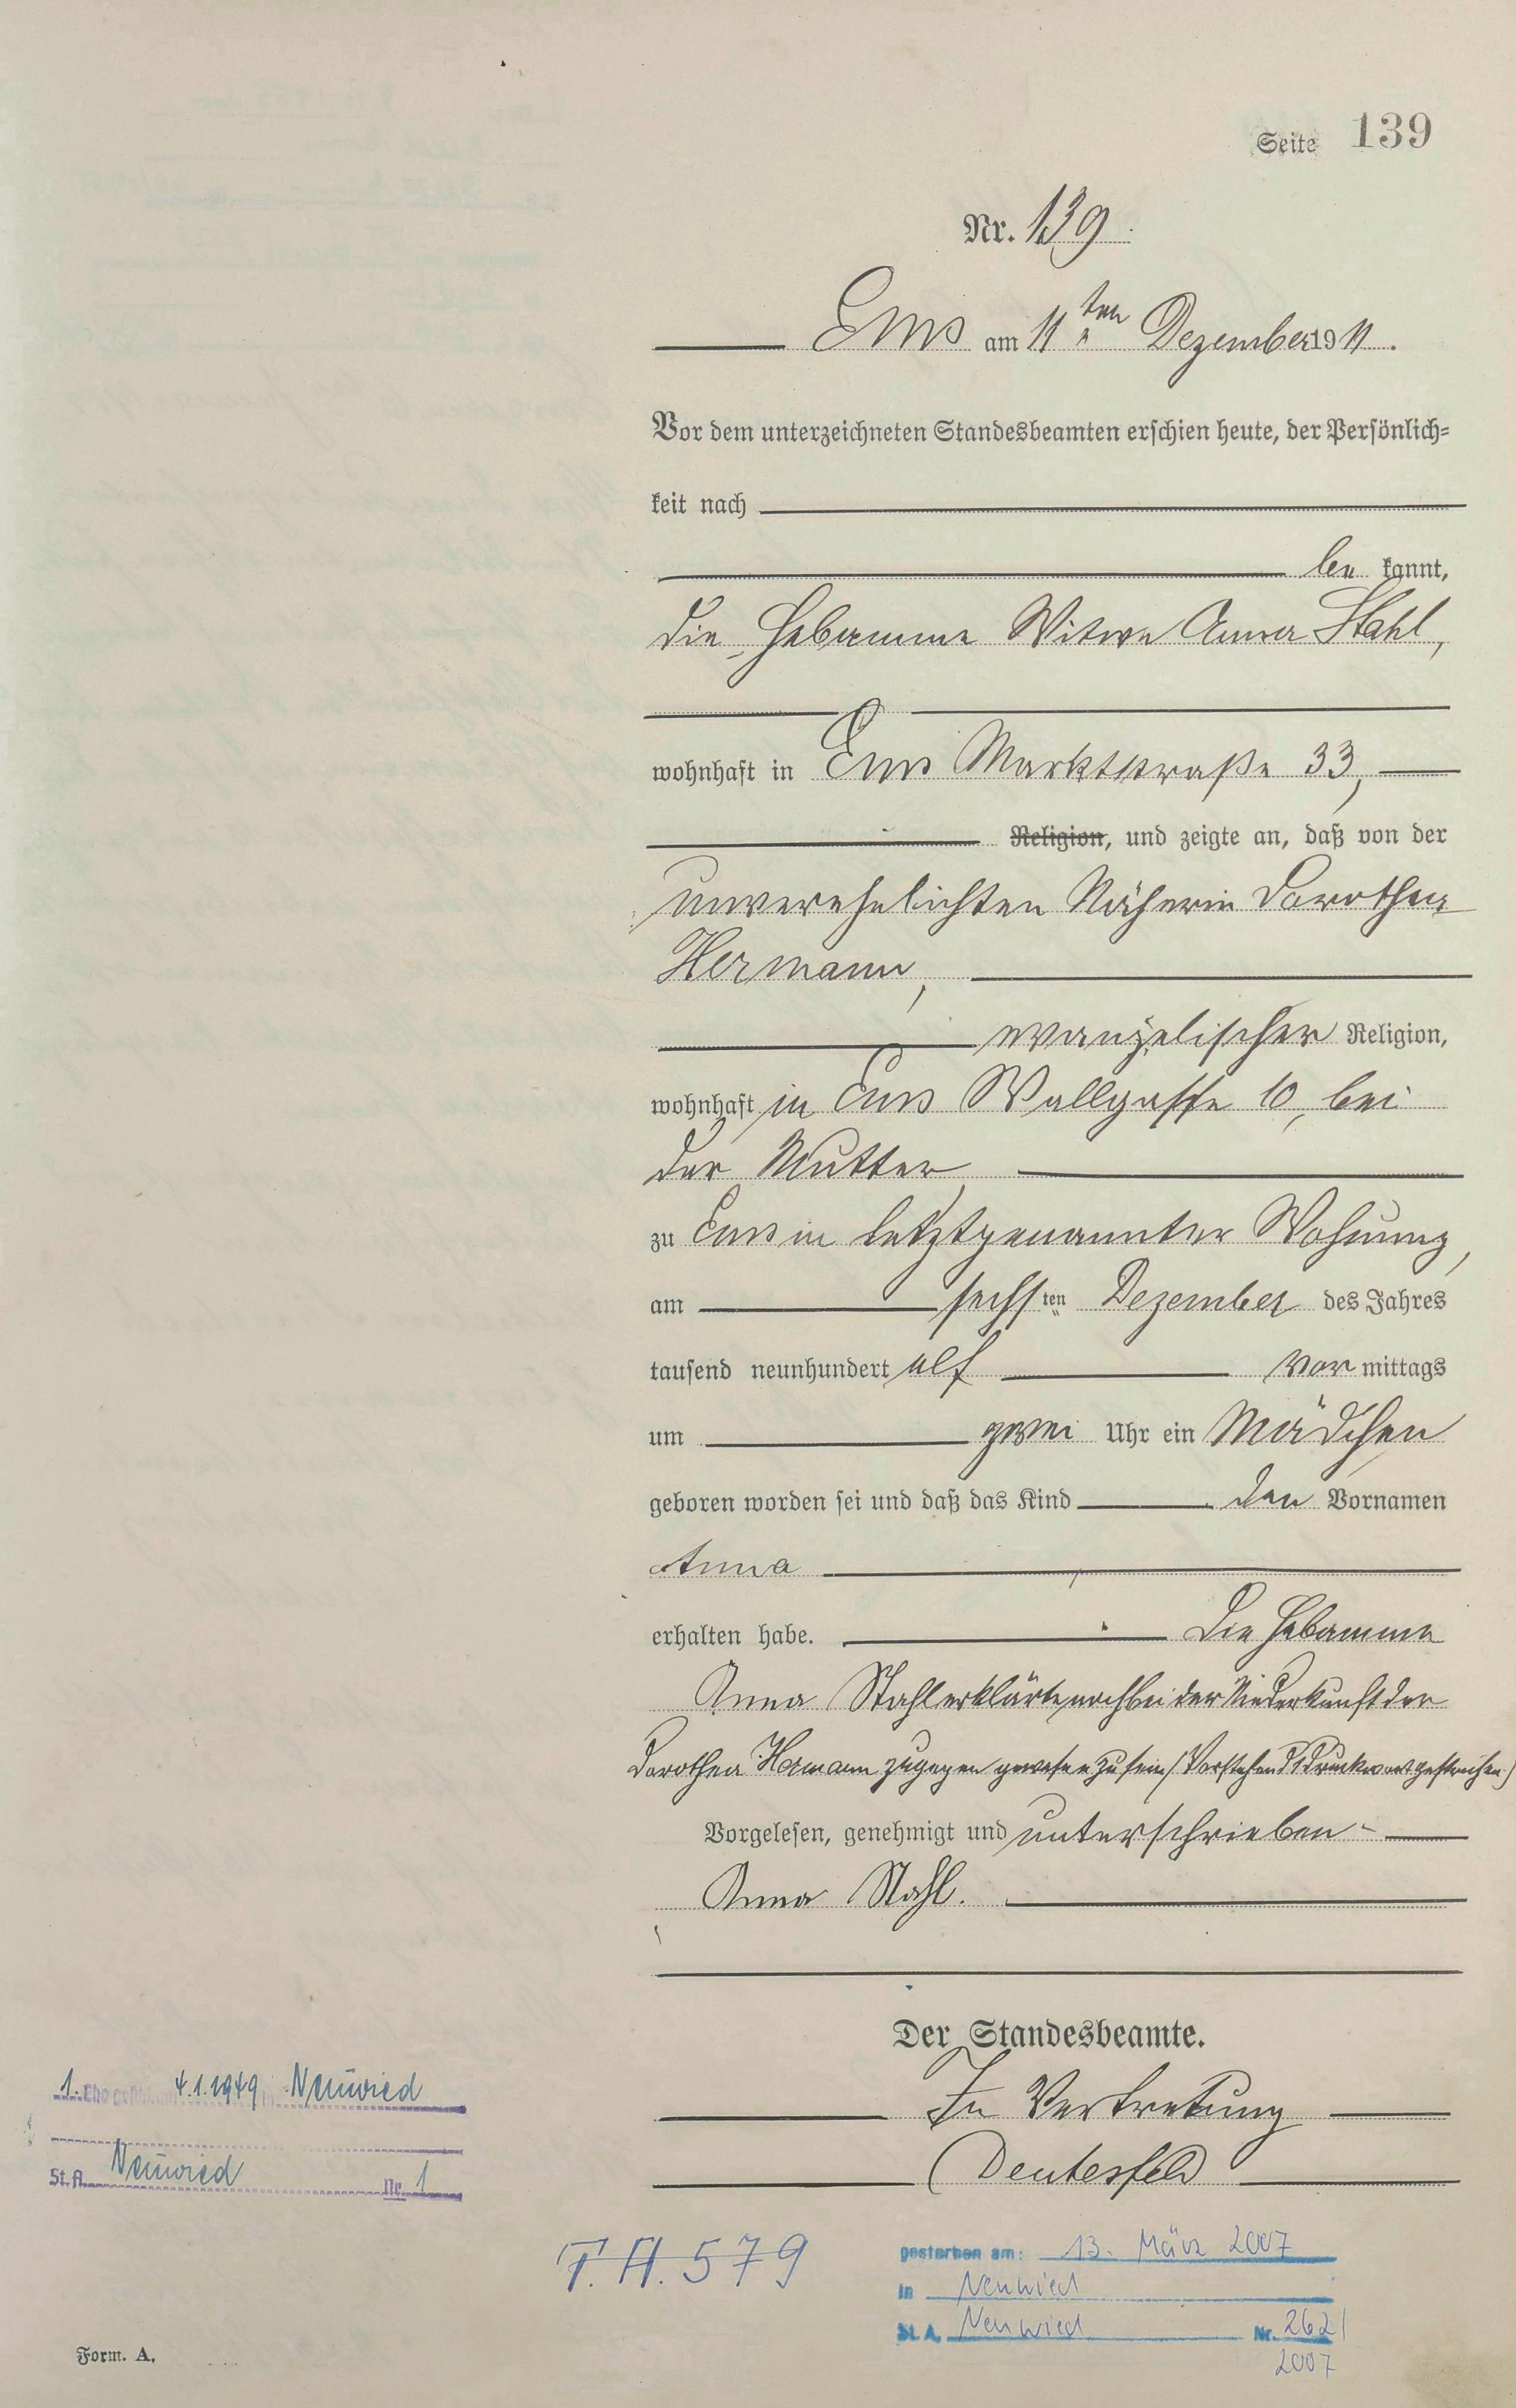 Seite 139
Nr. 139.
Ems am 11ten Dezember 1911.
Vor dem unterzeichneten Standesbeamten erschien heute, der Persönlich-
keit nach
be kannt,
die Hebamme Witwe Anna Stahl,
wohnhaft in Ems Marktstraße 33,
Religion, und zeigte an, daß von der
unverehelichten Näherin Dorothea
Hermann,
evangelischer Religion,
wohnhaft in Ems Wallgasse 10, bei
der Mutter,
zu Ems in letztgenannter Wohnung,
am sechsten Dezember des Jahres
tausend neunhundert elf vor mittags
um zwei Uhr ein Mädchen
geboren worden sei und daß das Kind den Vornamen
Anna
erhalten habe. Die Hebamme
Anna Stahl erklärte noch bei der Niederkunft der
Dorothea Hermann zugegen gewesen zu sein (Vorstehend 1 Druckwort gestrichen)
Vorgelesen, genehmigt und unterschrieben
Anna Stahl.
Der Standesbeamte.
In Vertretung
Deutesfeld
1. Ehe 4.1.1949 Neuwied
St. A. Neuwied Nr. 1
T. A. 579
gestorben am: 13. März 2007
in Neuwied
St. A. Neuwied Nr. 262/
2007
Form. A.